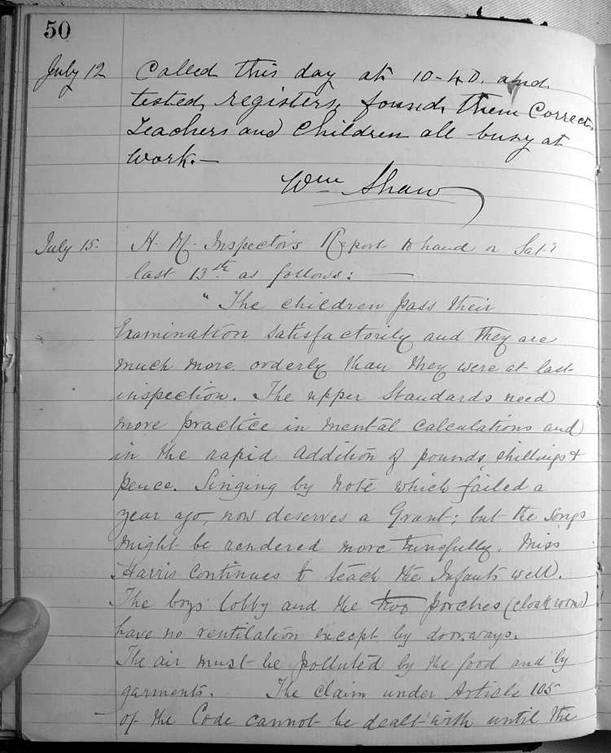 50
July 12 Called this day at 10-40. and
tested registers, found them Correct
Teachers and Children all busy at
work.—
Wm Shaw
July 15. H. M. Inspector's Report to hand on Sat.
last 13th as follows: —
"The children pass their
Examination satisfactorily and they are
much more orderly than they were at last
inspection. The upper Standards need
more practice in mental calculations and
in the rapid addition of pounds, shillings &
pence. Singing by note which failed a
year ago, now deserves a Grant; but the songs
might be rendered more tunefully. Miss
Harris continues to teach the Infants well.
The boys lobby and the two porches (cloak room)
have no ventilation except by doorways.
The air must be polluted by the food and by
garments. The claim under Article 105
of the Code cannot be dealt with until the